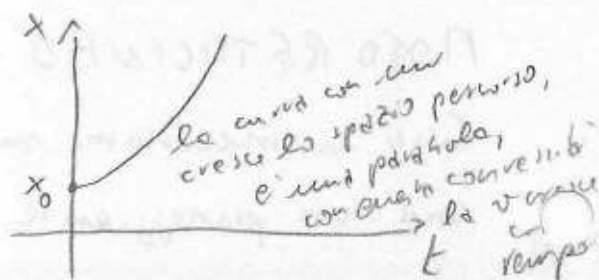 x
x₀
la curva con cui
cresce lo spazio percorso,
è una parabola,
con questa convessità
la v cresce
t
tempo